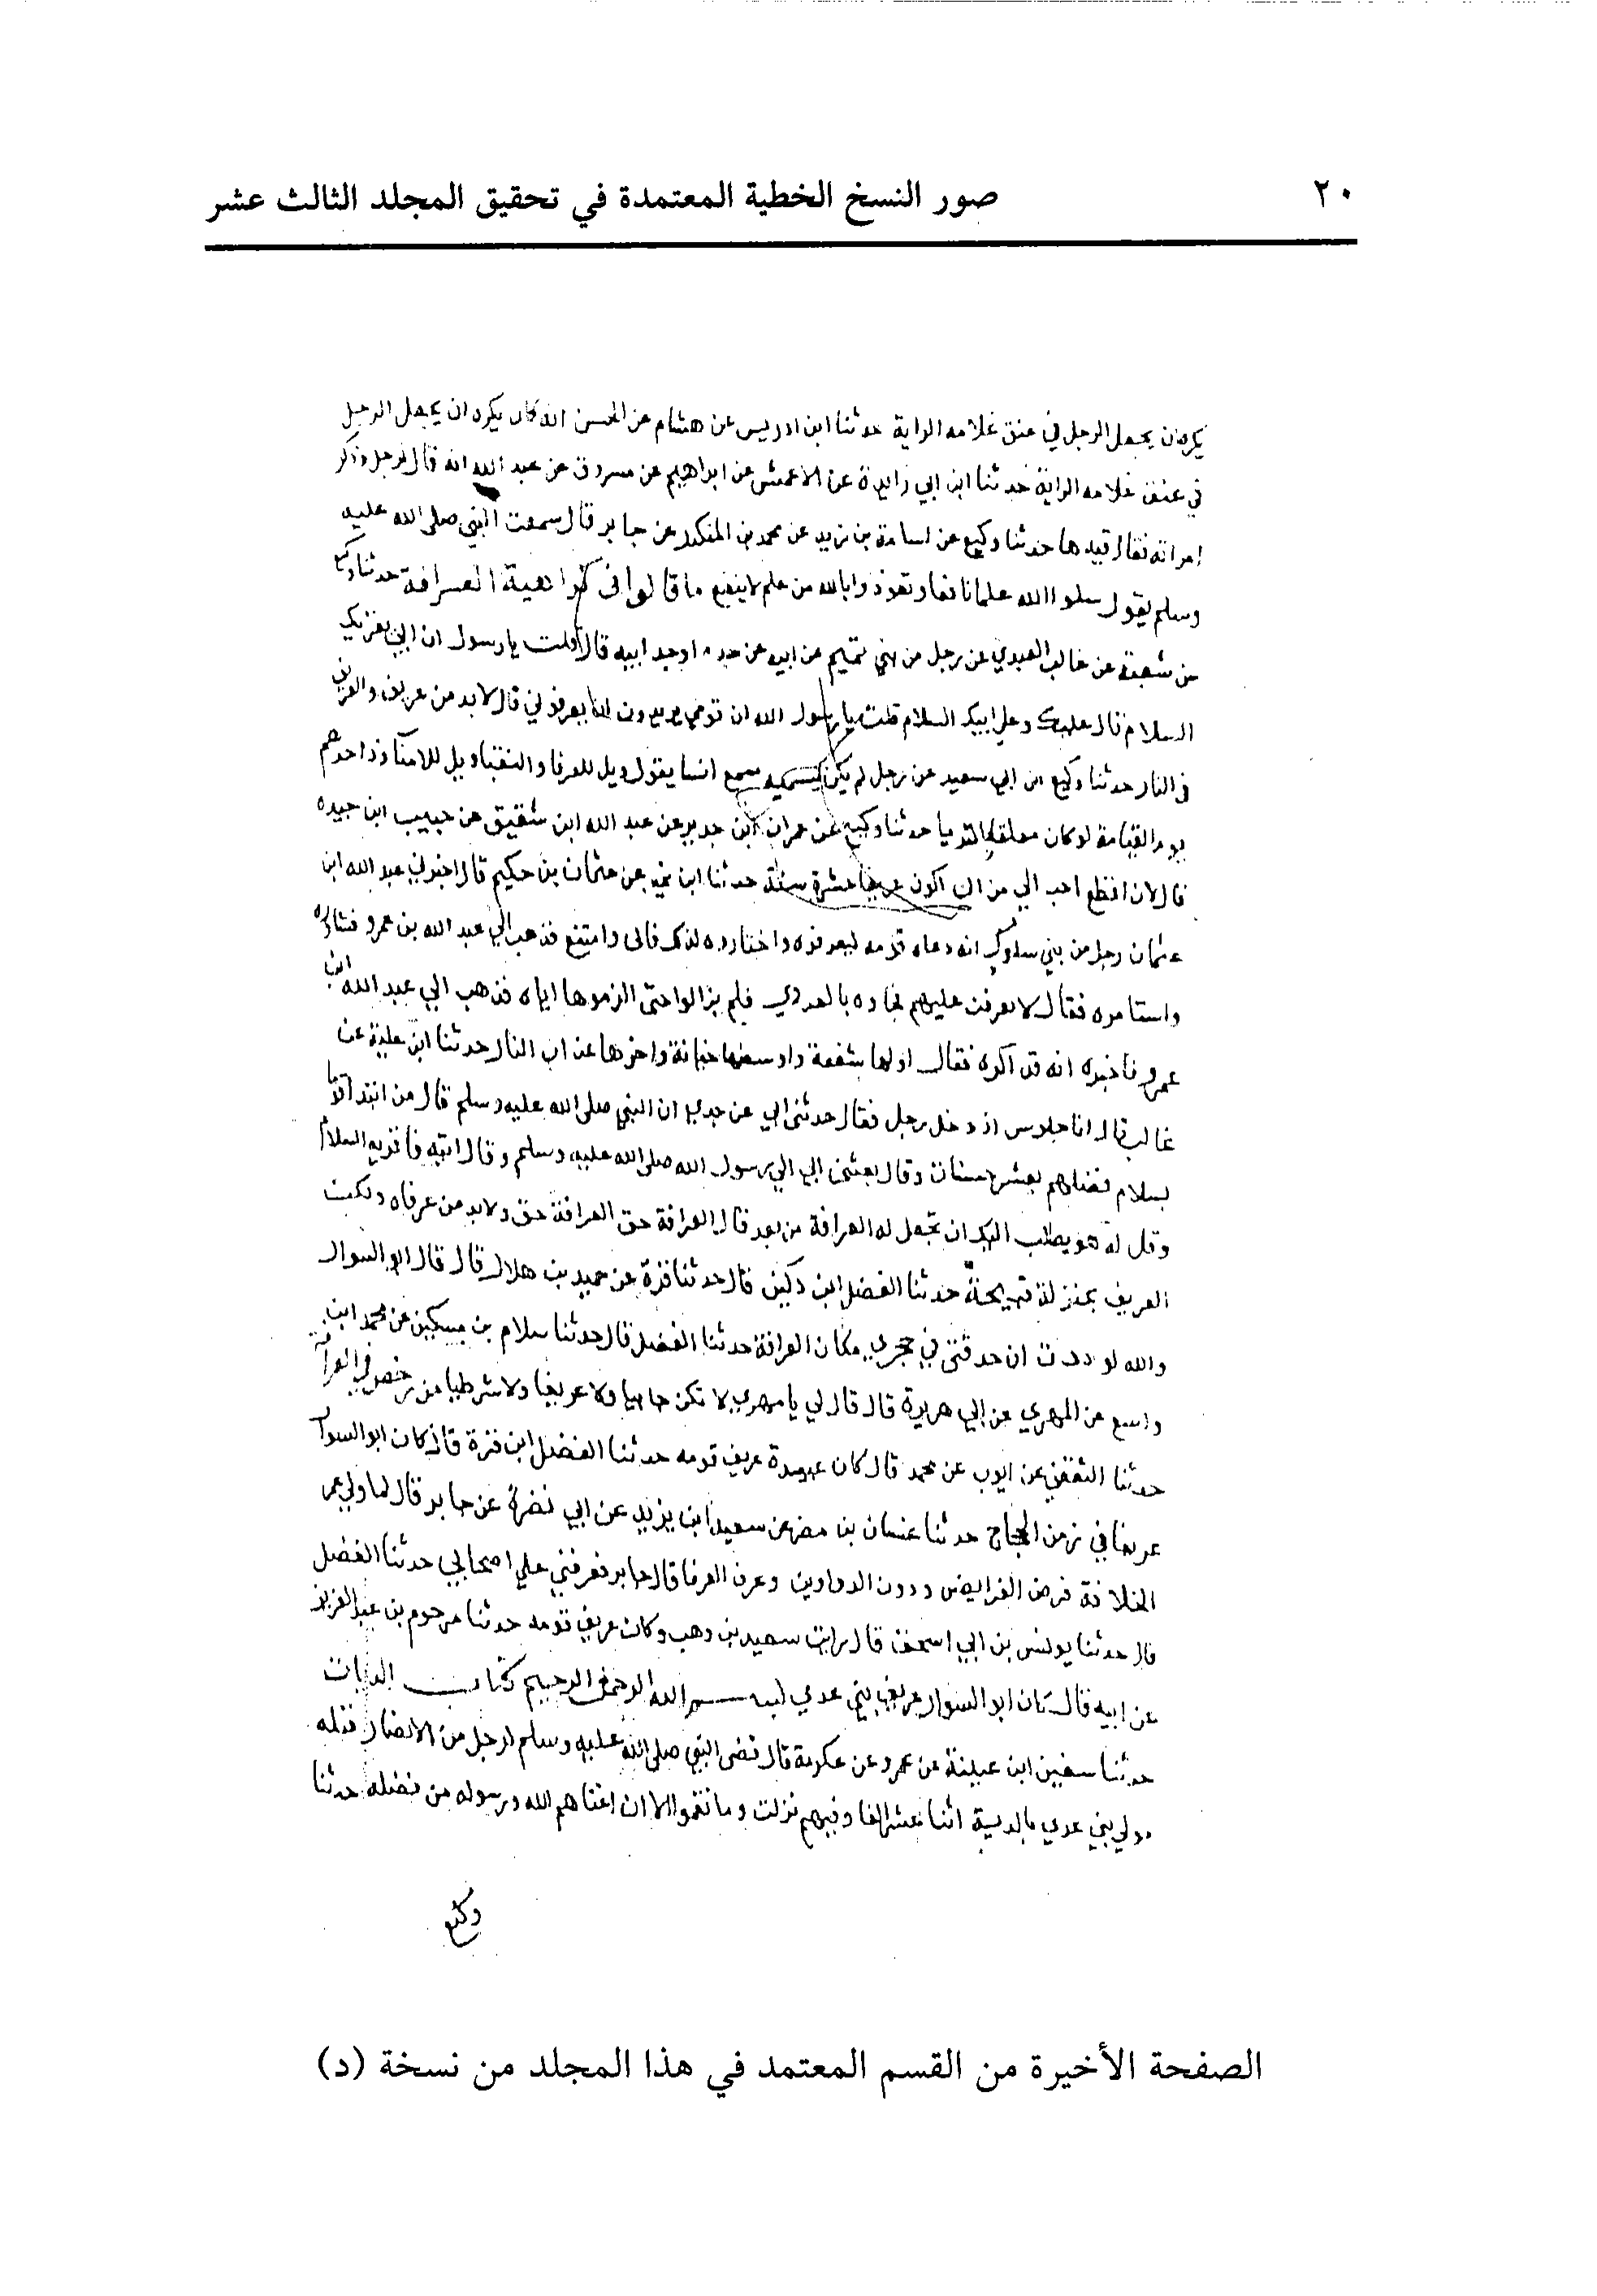 ٢٠
صور النسخ الخطية المعتمدة في تحقيق المجلد الثالث عشر
يكره ان يجعل الرجل في عنق غلامه الراية حدثنا ابن ادريس عن هشام عن الحسن انه كان يكره ان يجعل الرجل
في عنق غلامه الراية حدثنا ابن ابي زايدة عن الاعمش عن ابراهيم عن مسروق عن عبد الله انه قال لرجل وذكر
امراته فقال قيدها حدثنا وكيع عن اسامة بن زيد عن محمد بن المنكدر عن جابر قال سمعت النبي صلى الله عليه
وسلم يقول سلوا الله علما نافعا وتعوذوا بالله من علم لا ينفع ما قالوا في كراهية العرافة حدثنا وكيع
عن شعبة عن غالب العبدي عن رجل من بني تميم عن ابيه عن جده او جد ابيه قال قلت يا رسول ان ابي يقريك
السلام قال عليك وعلى ابيك السلام قلت يا رسول الله ان قومي يريدون ان يعرفوني قال لا بد من عريف والعريف
في النار حدثنا وكيع عن ابي سعيد عن رجل لم يكن يسميه سمع انسا يقول ويل للعرفا والنقبا ويل للامنا ود احدهم
يوم القيامة لو كان معلقا بالثريا حدثنا وكيع عن عمران ابن حدير عن عبد الله ابن شقيق عن حبيب ابن حيده
قال لان اقطع احب الي من ان اكون عريفا عشرة سنة حدثنا ابن نمير عن عثمان بن حكيم قال اخبرني عبد الله ابن
عثمان رجل من بني سلول انه دعاه قومه ليعرفوه واختاروه لذلك فابى وامتنع فذهب الي عبد الله بن عمرو فشاوره
واستامره فقال لا تعرفن عليهم فجاوه بالعدوي فلم يزالوا حتى الزموها اياه فذهب الي عبد الله ابن
عمرو فاخبره انه قد اكره فقال اولها شفعة واوسطها خيانة واخرها عذاب النار حدثنا ابن علية عن
غالب قال انا جلوس اذ دخل رجل فقال حدثني ابي عن جدي ان النبي صلى الله عليه وسلم قال من ابتدا قوما
بسلام فضلهم بعشر حسنات وقال بعثني ابي الي رسول الله صلى الله عليه وسلم وقال ائته فاقريه السلام
وقل له هو يطلب اليك ان تجعل له العرافة من بعد قال العرافة حق العرافة حق ولا بد من عرفاه ولكن
العريف بمنزلة قبيحة حدثنا الفضل ابن دكين قال حدثنا قرة عن حميد بن هلال قال قال ابو السوار
والله لو ددت ان حدقتي في حجري مكان العرافة حدثنا الفضل قال حدثنا سلام بن مسكين عن محمد ابن
واسع عن المهري عن ابي هريرة قال قال لي يا مهري لا تكن جابيا ولا عريفا ولا شرطيا من رخص في العرافة
حدثنا الثقفي عن ايوب عن محمد قال كان عبيدة عريف قومه حدثنا الفضل ابن قرة قال كان ابو السوار
عريفا في زمن الحجاج حدثنا غسان بن مضر عن سعيد ابن يزيد عن ابي نضرة عن جابر قال لما ولي عمر
الخلافة فرض الفرايض ودون الدواوين وعرف العرفا قال جابر فعرفني علي اصحابي حدثنا الفضل
قال حدثنا يونس بن ابي اسحق قال رايت سعيد بن وهب وكان عريف قومه حدثنا مرحوم بن عبد العزيز
عن ابيه قال كان ابو السوار عريف بني عدي بسم الله الرحمن الرحيم كتاب الديات
حدثنا سفين ابن عيينة عن عمرو عن عكرمة قال قضى النبي صلى الله عليه وسلم لرجل من الانصار قتله
مولي بني عدي بالدية اثنا عشر الفا وفيهم نزلت وما نقموا الا ان اغناهم الله ورسوله من فضله حدثنا
وكيع
الصفحة الأخيرة من القسم المعتمد في هذا المجلد من نسخة (د)